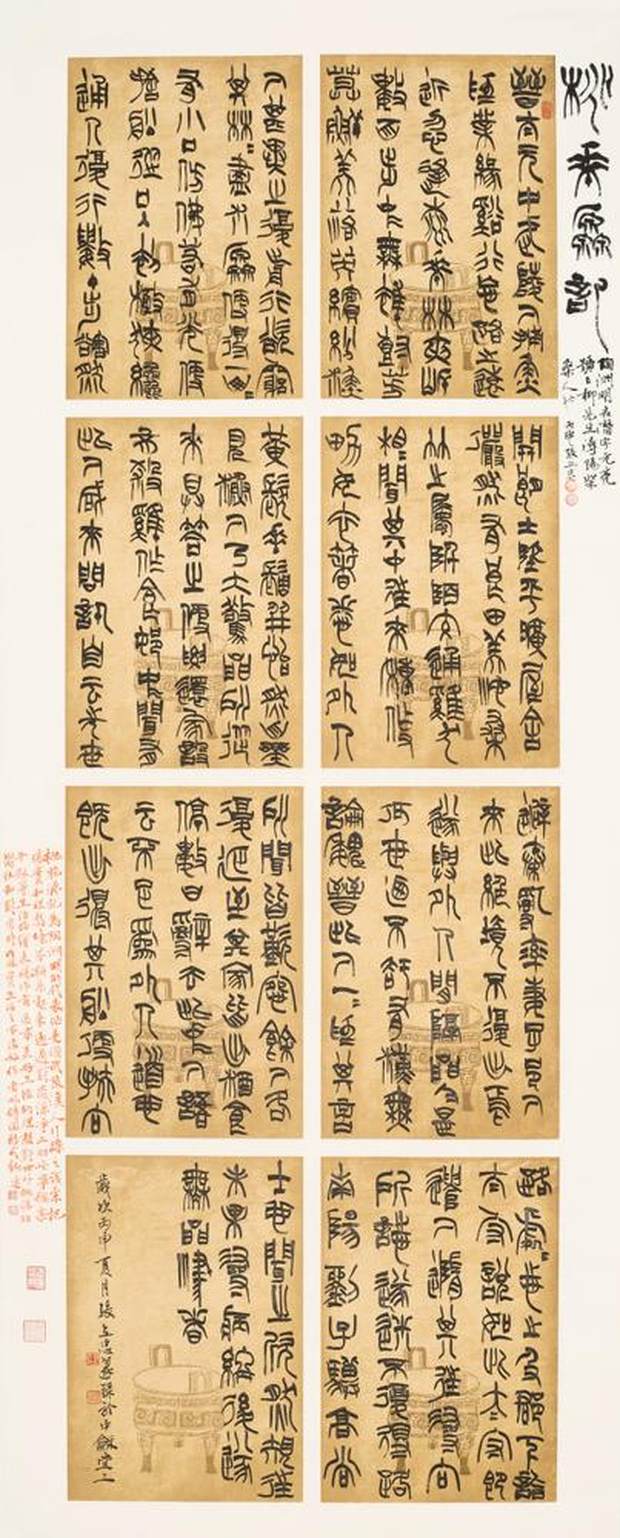 桃花源記
陶淵明名潛字元亮
號五柳先生潯陽柴
桑人也
晉太元中武陵人捕魚
為業緣谿行忘路之遠
近忽逢桃華林夾岸
數百步中無雜樹芳
草鮮美落英繽紛漁
人甚異之復前行欲窮
其林林盡水源便得一山山
有小口仿佛若有光便
捨船從口入初極狹纔
通人復行數十步豁然
開朗土地平曠屋舍
儼然有良田美池桑
竹之屬阡陌交通雞犬
相聞其中往來種作
男女衣著悉如外人
黃髮垂髫並怡然自樂
見漁人乃大驚問所從
來具答之便要還家設
酒殺雞作食邨中聞有
此人咸來問訊自云先世
避秦亂率妻子邑人
來此絕境不復出焉
遂與外人間隔問今是
何世乃不知有漢無
論魏晉此人一一為具言
所聞皆歎惋餘人各
復延至其家皆出酒食
停數日辭去此中人語
云不足為外人道也
既出得其船便扶向
路處處志之及郡下詣
太守說如此太守即
遣人隨其往尋向
所誌遂迷不復得路
南陽劉子驥高尚
士也聞之欣然規往
未果尋病終後遂
無問津者
歲次丙申夏月張立忠篆錄於中龢堂